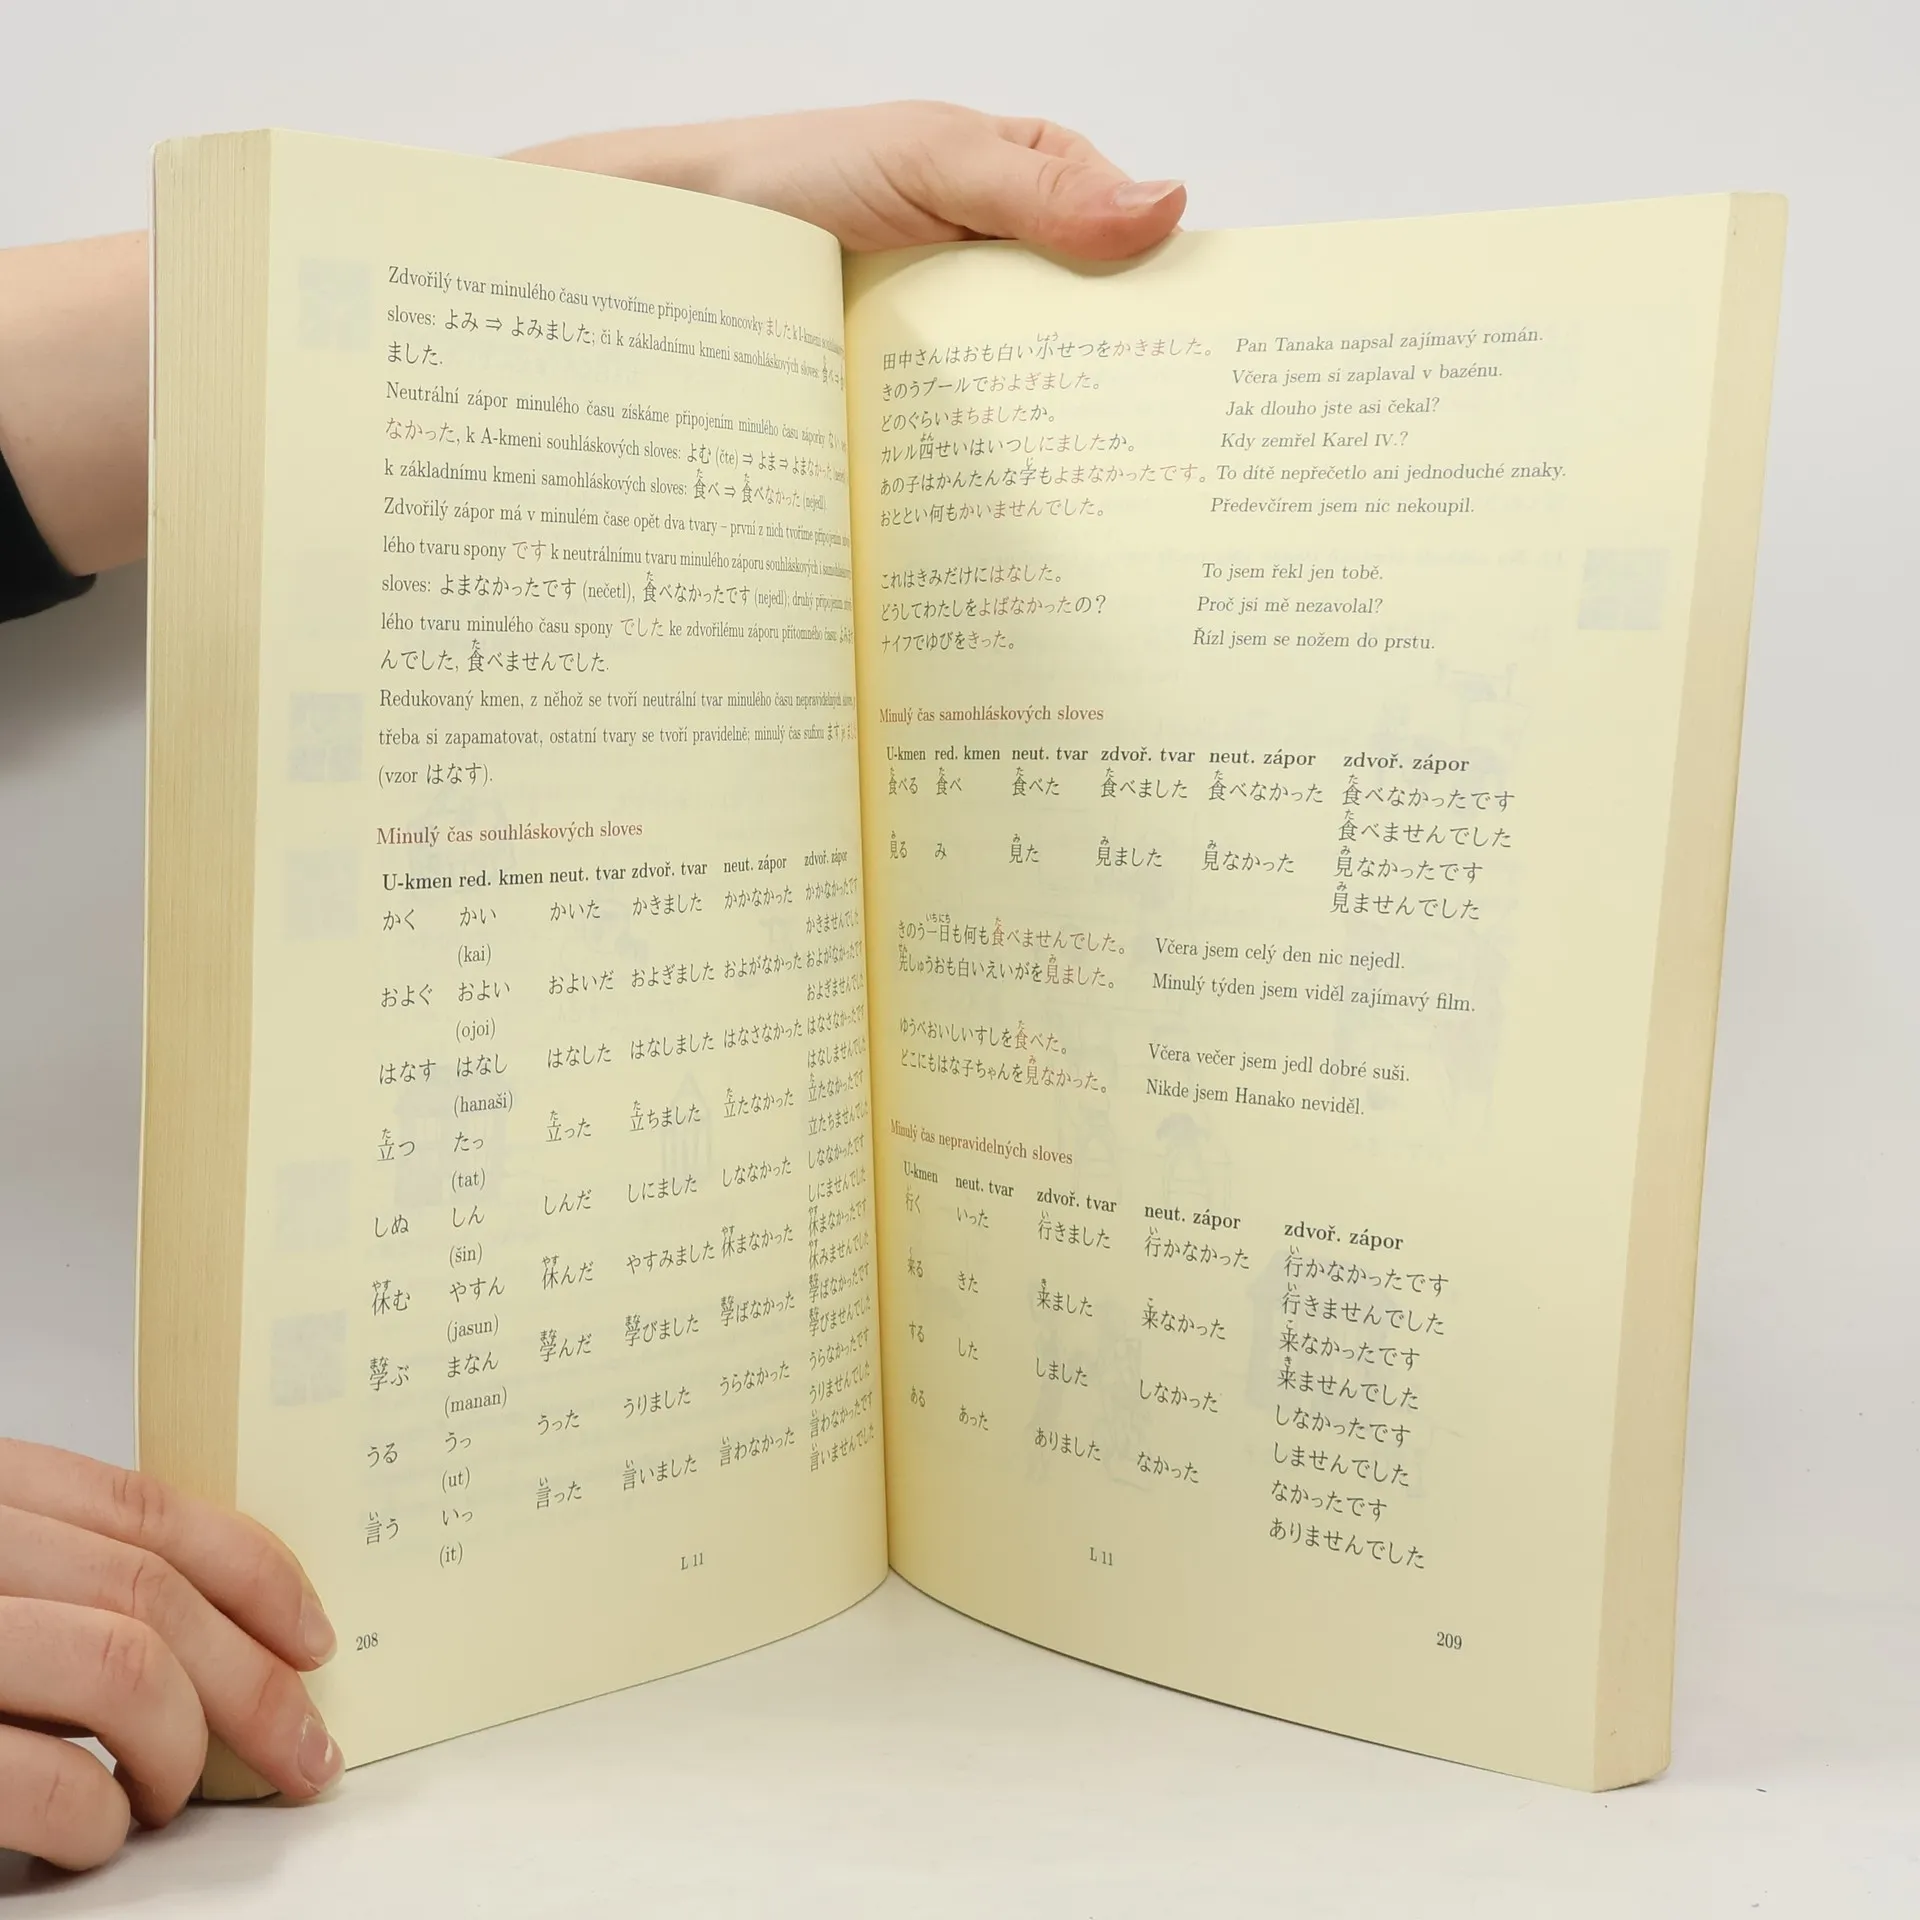 Zdvořilý tvar minulého času vytvoříme připojením koncovky ました k I-kmeni
sloves: よみ ⇒ よみました; či k základnímu kmeni samohláskových sloves: 食べ ⇒
ました.
Neutrální zápor minulého času získáme připojením minulého času záporky ない
なかった, k A-kmeni souhláskových sloves: よむ (čte) ⇒ よま ⇒ よまなかった
k základnímu kmeni samohláskových sloves: 食べ ⇒ 食べなかった (nejedl).
Zdvořilý zápor má v minulém čase opět dva tvary – první z nich tvoříme připojením
lého tvaru spony です k neutrálnímu tvaru minulého záporu souhláskových i
sloves: よまなかったです (nečetl), 食べなかったです (nejedl); druhý připojením
lého tvaru minulého času spony でした ke zdvořilému záporu přítomného času
んでした, 食べませんでした.
Redukovaný kmen, z něhož se tvoří neutrální tvar minulého času nepravidelných
třeba si zapamatovat, ostatní tvary se tvoří pravidelně; minulý čas sufixu ます je
(vzor はなす).
Minulý čas souhláskových sloves
U-kmen red. kmen neut. tvar zdvoř. tvar neut. zápor zdvoř. zápor
かく かい かいた かきました かかなかった かかなかったです
(kai) かきませんでした
およぐ およい およいだ およぎました およがなかった およがなかったです
(ojoi) およぎませんでした
はなす はなし はなした はなしました はなさなかった はなさなかったです
(hanaši) はなしませんでした
立つ たっ 立った 立ちました 立たなかった 立たなかったです
(tat) 立たちませんでした
しぬ しん しんだ しにました しななかった しななかったです
(šin) しにませんでした
休む やすん 休んだ やすみました 休まなかった 休まなかったです
(jasun) 休みませんでした
學ぶ まなん 學んだ 學びました 學ばなかった 學ばなかったです
(manan) 學びませんでした
うる うっ うった うりました うらなかった うらなかったです
(ut) うりませんでした
言う いっ 言った 言いました 言わなかった 言わなかったです
(it) 言いませんでした
L 11
208
田中さんはおも白い小せつをかきました。 Pan Tanaka napsal zajímavý román.
きのうプールでおよぎました。 Včera jsem si zaplaval v bazénu.
どのぐらいまちましたか。 Jak dlouho jste asi čekal?
カレル四せいはいつしにましたか。 Kdy zemřel Karel IV.?
あの子はかんたんな字もよまなかったです。 To dítě nepřečetlo ani jednoduché znaky.
おととい何もかいませんでした。 Předevčírem jsem nic nekoupil.
これはきみだけにはなした。 To jsem řekl jen tobě.
どうしてわたしをよばなかったの？ Proč jsi mě nezavolal?
ナイフでゆびをきった。 Řízl jsem se nožem do prstu.
Minulý čas samohláskových sloves
U-kmen red. kmen neut. tvar zdvoř. tvar neut. zápor zdvoř. zápor
食べる 食べ 食べた 食べました 食べなかった 食べなかったです
食べませんでした
見る み 見た 見ました 見なかった 見なかったです
見ませんでした
きのう一日も何も食べませんでした。 Včera jsem celý den nic nejedl.
先しゅうおも白いえいがを見ました。 Minulý týden jsem viděl zajímavý film.
ゆうべおいしいすしを食べた。 Včera večer jsem jedl dobré suši.
どこにもはな子ちゃんを見なかった。 Nikde jsem Hanako neviděl.
Minulý čas nepravidelných sloves
U-kmen neut. tvar zdvoř. tvar neut. zápor zdvoř. zápor
行く いった 行きました 行かなかった 行かなかったです
行きませんでした
来る きた 来ました 来なかった 来なかったです
来ませんでした
する した しました しなかった しなかったです
しませんでした
ある あった ありました なかった なかったです
ありませんでした
L 11
209